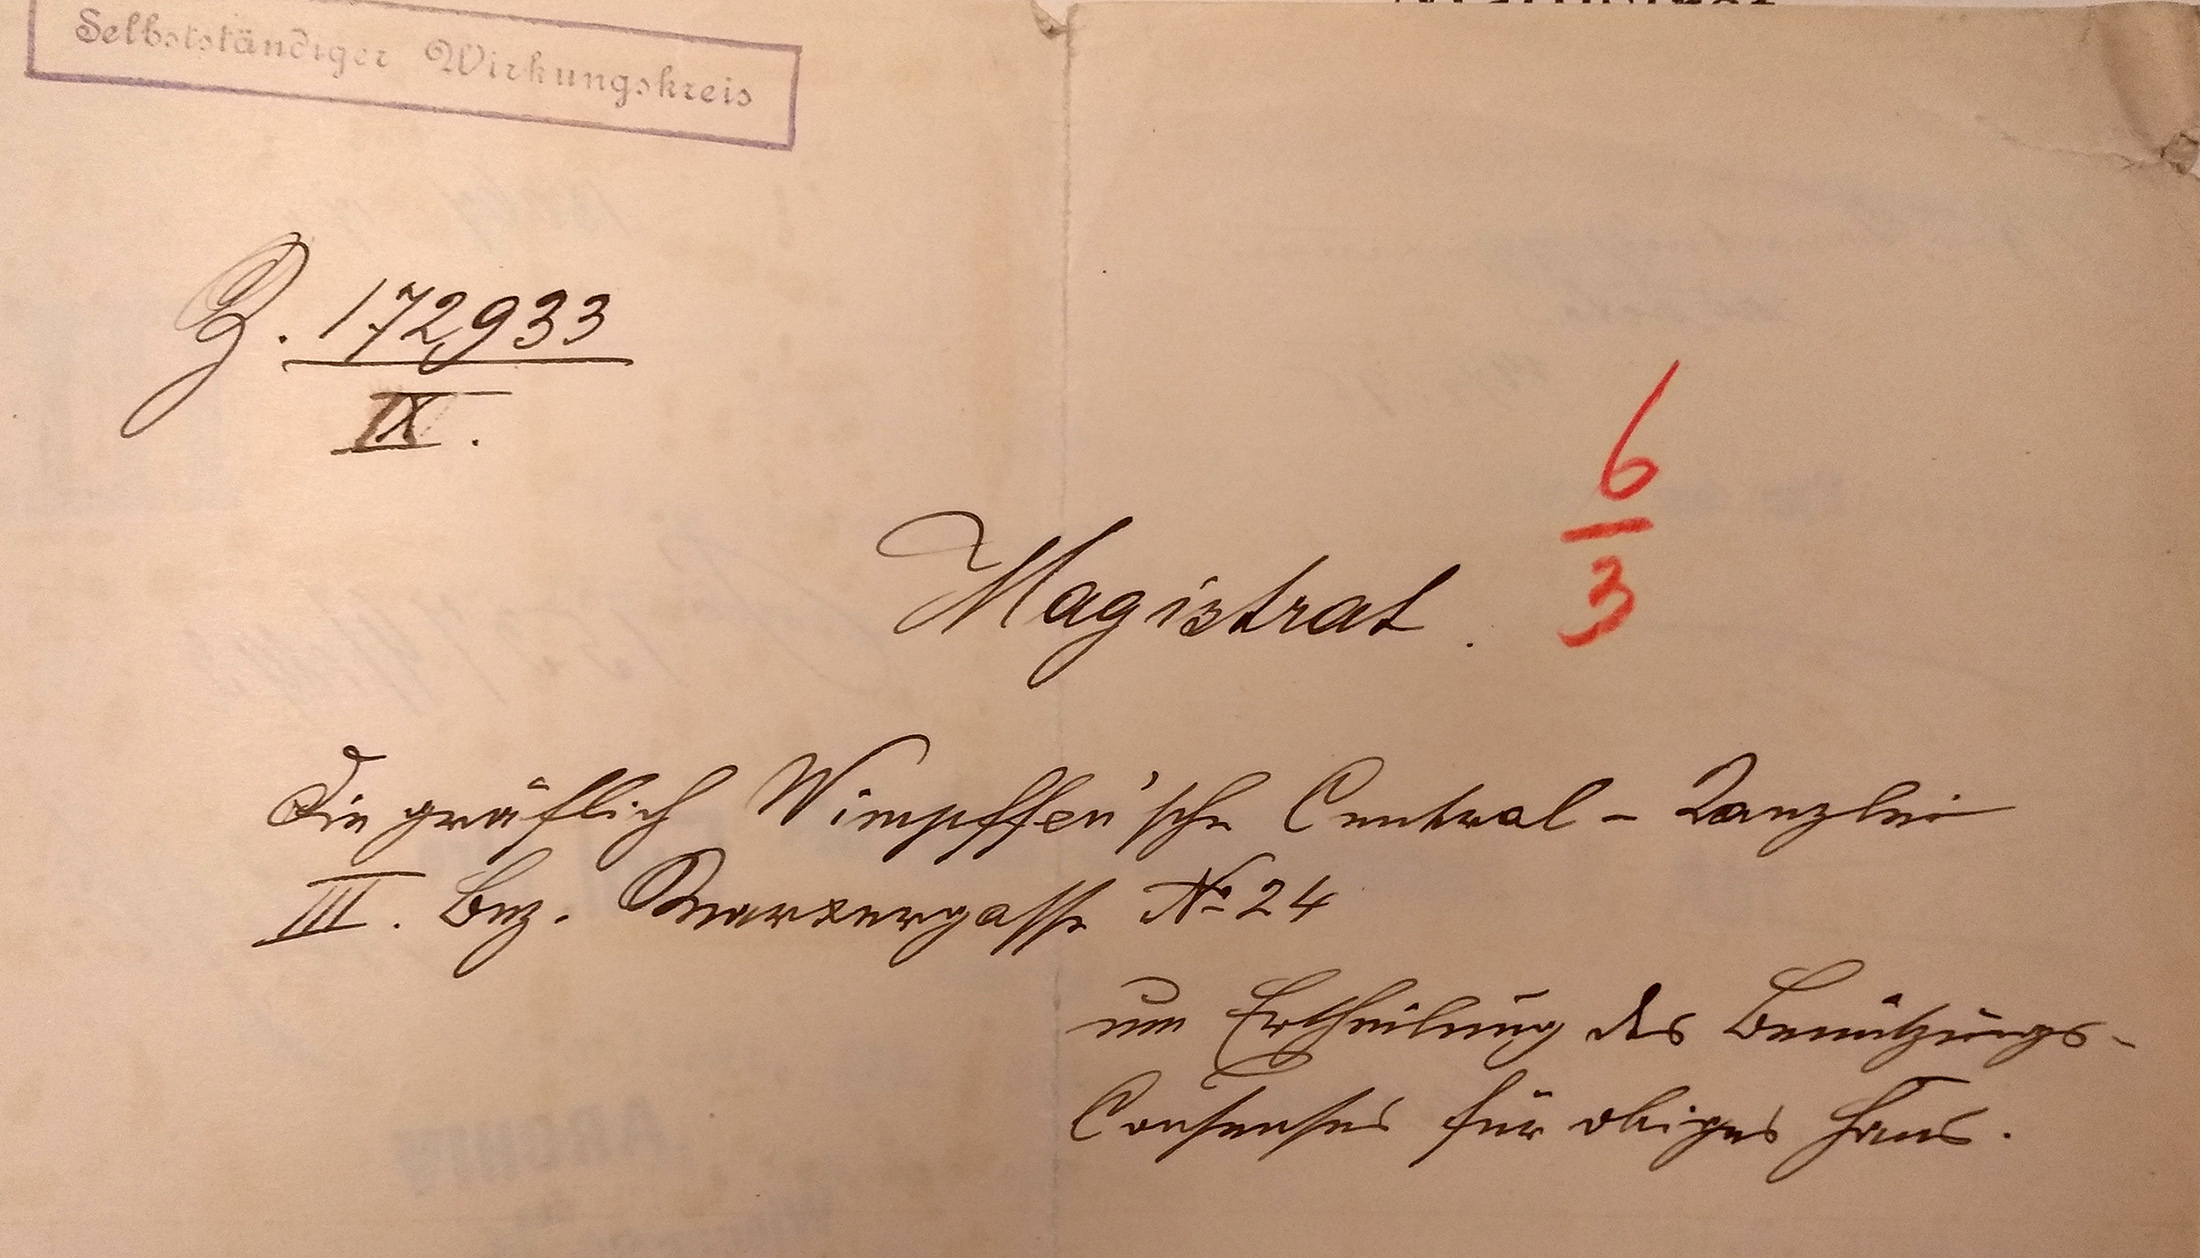 Selbstständiger Wirkungskreis
Z. 172933
IX.
6
3
Magistrat.
Die gräflich Wimpffen'sche Central-Kanzlei
III. Bez. Marxergasse № 24
um Ertheilung des Benützungs-
Consenses für obiges Haus.